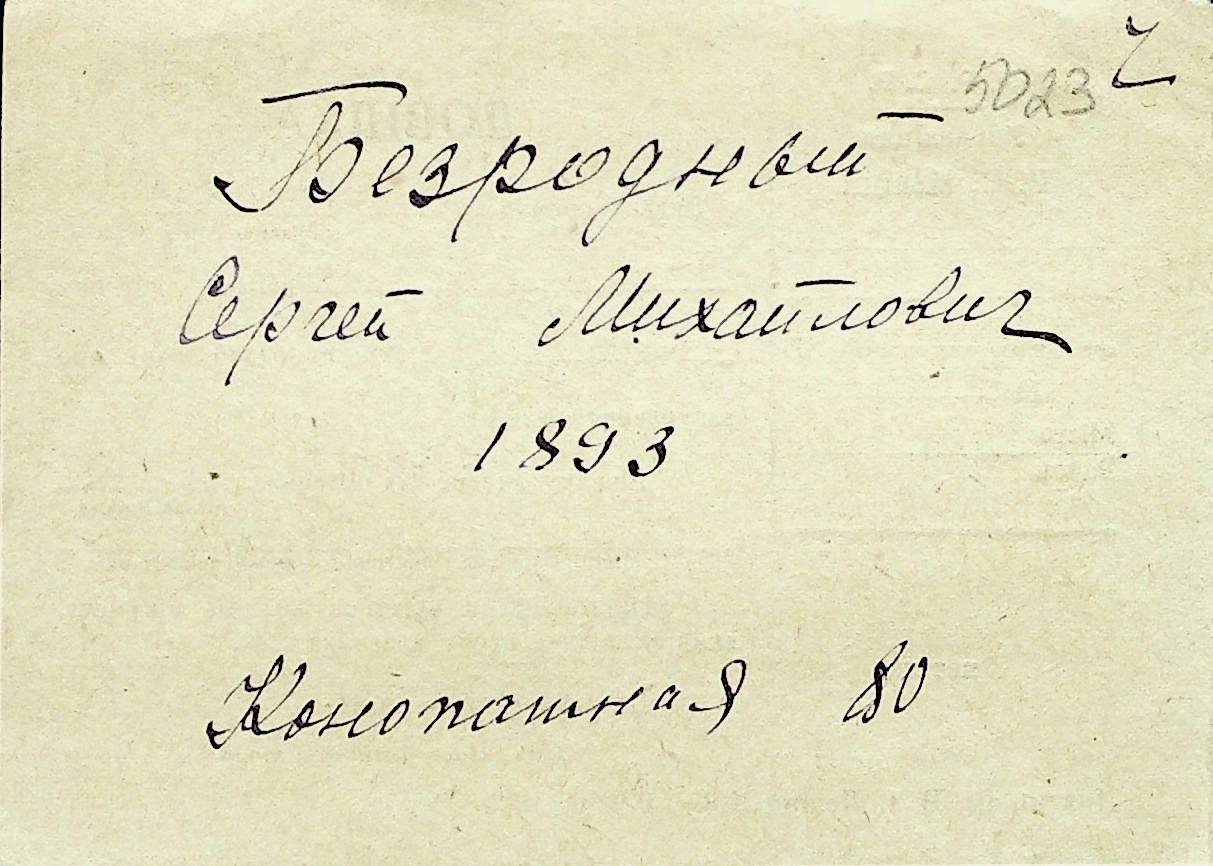 5023
Безродный
Сергей Михайлович
1893
Конопатная 80